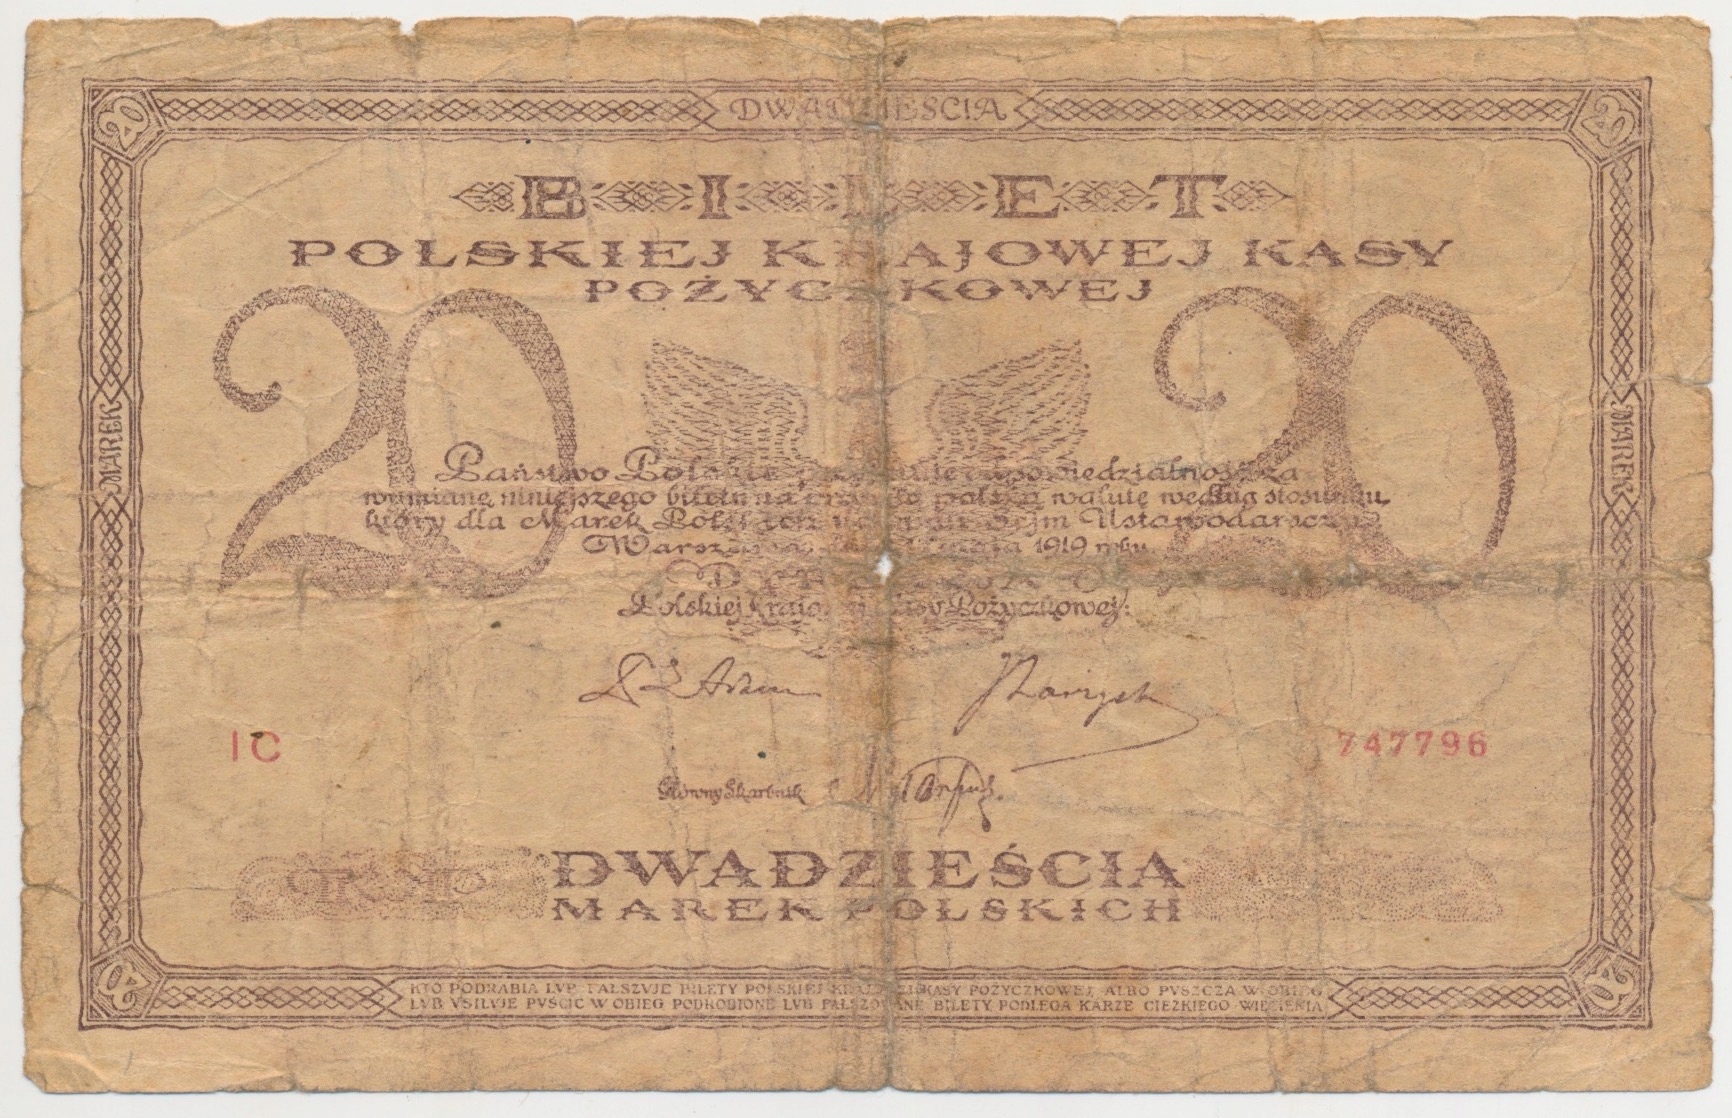 20 DWADZIEŚCIA 20
BILET
POLSKIEJ KRAJOWEJ KASY
POŻYCZKOWEJ
20 20
MAREK
MAREK
Państwo Polskie odpowiedzialność za
wymianę niniejszego biletu na polską walutę według stosunku,
który dla Marek Polskich Sejm Ustawodawczy.
Warszawa, maja 1919 roku
DYREKCJA
Polskiej Krajowej Kasy Pożyczkowej:
IC 747796
Główny Skarbnik
DWADZIEŚCIA
MAREK POLSKICH
20 20
KTO PODRABIA LVB FAŁSZVJE BILETY POLSKIEJ KRAJOWEJ KASY POŻYCZKOWEJ, ALBO PVSZCZA W OBIEG
LVB VSIŁVJE PVŚCIĆ W OBIEG PODROBIONE LVB FAŁSZOWANE BILETY, PODLEGA KARZE CIĘŻKIEGO WIĘZIENIA